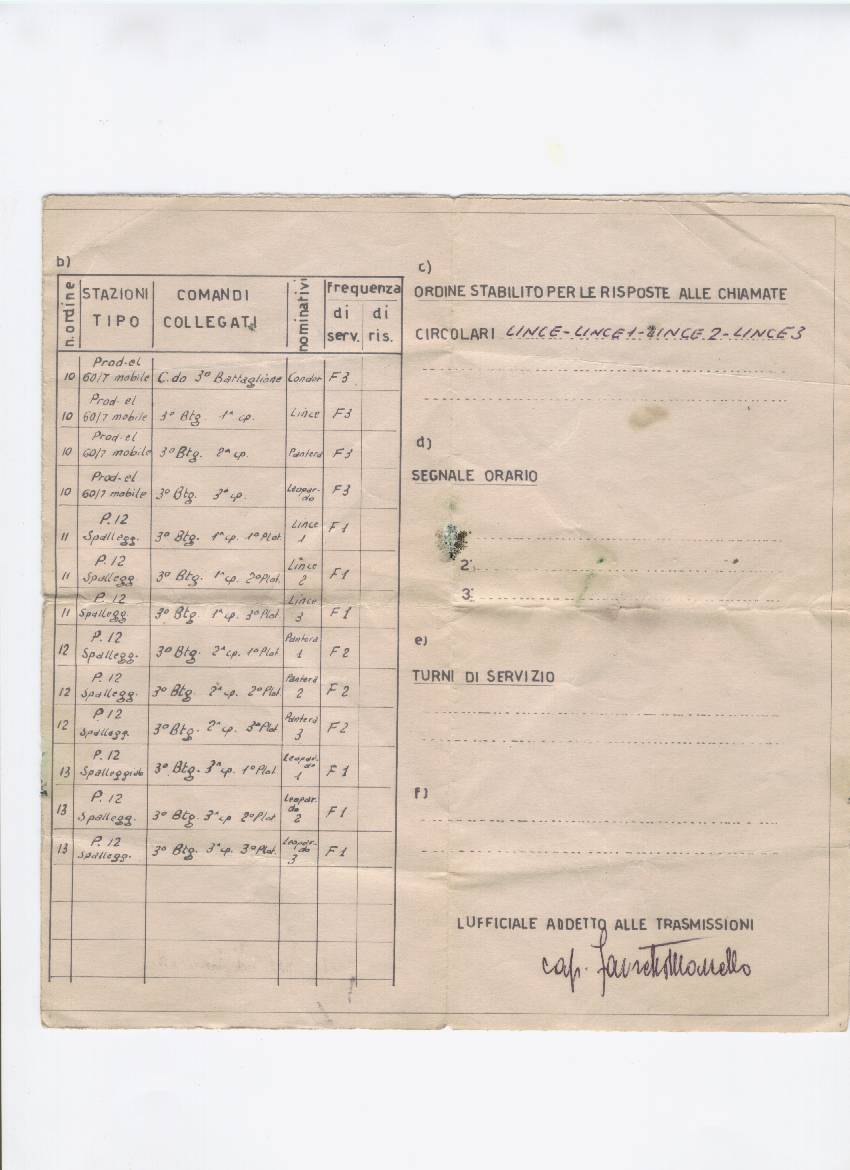 b)
n. ordine STAZIONI TIPO COMANDI COLLEGATI nominativi frequenza di serv. di ris.
10 Prod-el 60/7 mobile C.do 3º Battaglione Condor F3
10 Prod-el 60/7 mobile 3º Btg. 1ª cp. Lince F3
10 Prod-el 60/7 mobile 3º Btg. 2ª cp. Pantera F3
10 Prod-el 60/7 mobile 3º Btg. 3ª cp. Leopardo F3
11 P.12 Spallegg. 3º Btg. 1ª cp. 1º Plot. Lince 1 F1
11 P.12 Spallegg 3º Btg. 1ª cp. 2º Plot. Lince 2 F1
11 P.12 Spallegg 3º Btg. 1ª cp. 3º Plot. Lince 3 F1
12 P.12 Spallegg. 3º Btg. 2ª cp. 1º Plot. Pantera 1 F2
12 P.12 Spallegg. 3º Btg. 2ª cp. 2º Plot. Pantera 2 F2
12 P.12 Spallegg. 3º Btg. 2ª cp. 3º Plot. Pantera 3 F2
13 P.12 Spalleggiab 3º Btg. 3ª cp. 1º Plot. Leopardo 1 F1
13 P.12 Spallegg. 3º Btg. 3ª cp 2º Plot Leopardo 2 F1
13 P.12 Spallegg. 3º Btg. 3ª cp. 3º Plot. Leopardo 3 F1
c)
ORDINE STABILITO PER LE RISPOSTE ALLE CHIAMATE
CIRCOLARI LINCE-LINCE 1-LINCE 2-LINCE 3
d)
SEGNALE ORARIO
2:
3:
e)
TURNI DI SERVIZIO
f)
L'UFFICIALE ADDETTO ALLE TRASMISSIONI
cap.